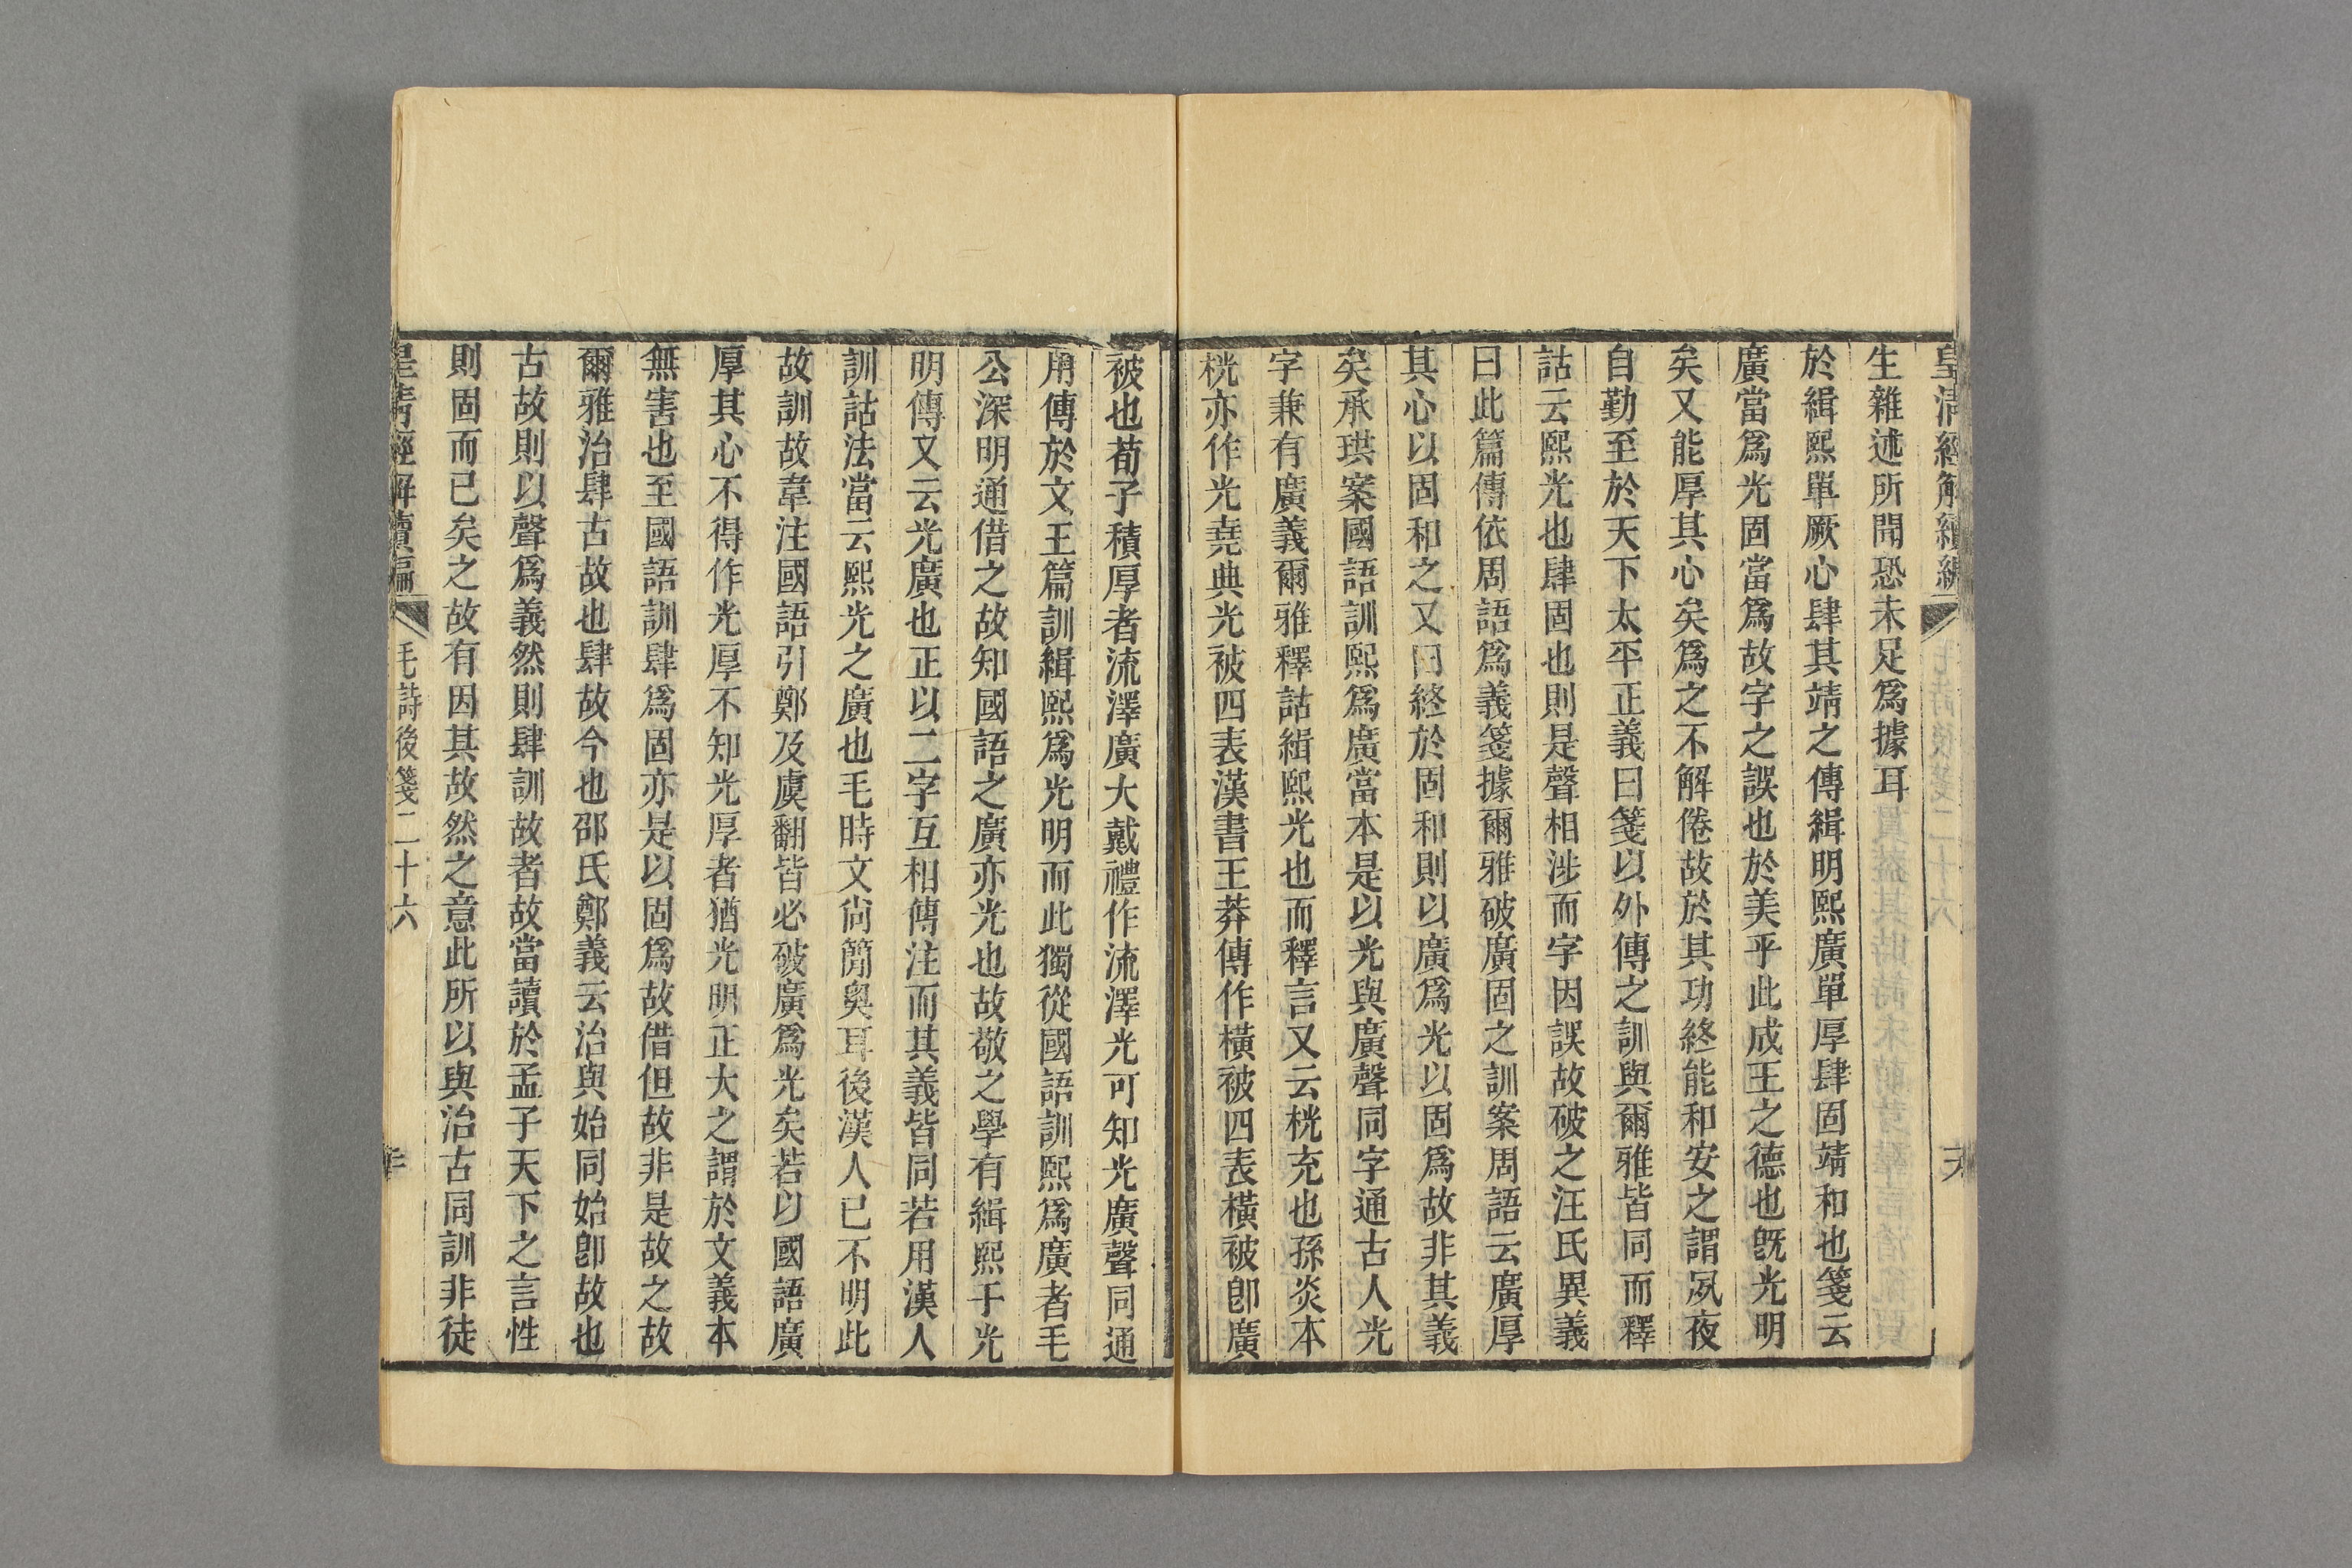 皇淸經解續編
生雜述所聞恐未足爲據耳
於緝熙單厥心肆其靖之傳緝明熙廣單厚肆固靖和也箋云
廣當爲光固當爲故字之誤也於美乎此成王之德也旣光明
矣又能厚其心矣爲之不解倦故於其功終能和安之謂夙夜
自勤至於天下太平正義曰箋以外傳之訓與爾雅皆同而釋
詁云熙光也肆固也則是聲相涉而字因誤故破之汪氏異義
曰此篇傳依周語爲義箋據爾雅破廣固之訓案周語云廣厚
其心以固和之又曰終於固和則以廣爲光以固爲故非其義
矣承珙案國語訓熙爲廣當本是以光與廣聲同字通古人光
字兼有廣義爾雅釋詁緝熙光也而釋言又云桄充也孫炎本
桄亦作光堯典光被四表漢書王莽傳作橫被四表橫被卽廣
被也荀子積厚者流澤廣大戴禮作流澤光可知光廣聲同通
用傳於文王篇訓緝熙爲光明而此獨從國語訓熙爲廣者毛
公深明通借之故知國語之廣亦光也故敬之學有緝熙于光
明傳又云光廣也正以二字互相傳注而其義皆同若用漢人
訓詁法當云熙光之廣也毛時文尙簡奧耳後漢人已不明此
故訓故韋注國語引鄭及虞翻皆必破廣爲光矣若以國語廣
厚其心不得作光厚不知光厚者猶光明正大之謂於文義本
無害也至國語訓肆爲固亦是以固爲故借但故非是故之故
爾雅治肆古故也肆故今也邵氏鄭義云治與始同始卽故也
古故則以聲爲義然則肆訓故者故當讀於孟子天下之言性
則固而已矣之故有因其故然之意此所以與治古同訓非徒
皇淸經解續編 毛詩後箋二十六